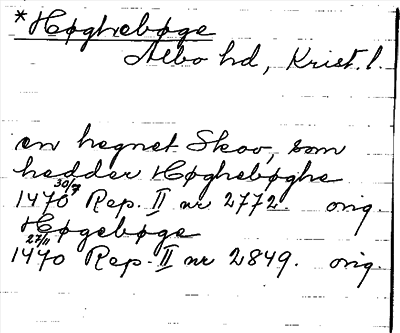 *Høghebøge
Albo hd, Krist. l.
en hegnet Skov, som
hedder Høghebøghe
1470 30/7 Rep. II nr 2772. orig.
Høgebøge
1470 27/11 Rep. II nr 2849. orig.